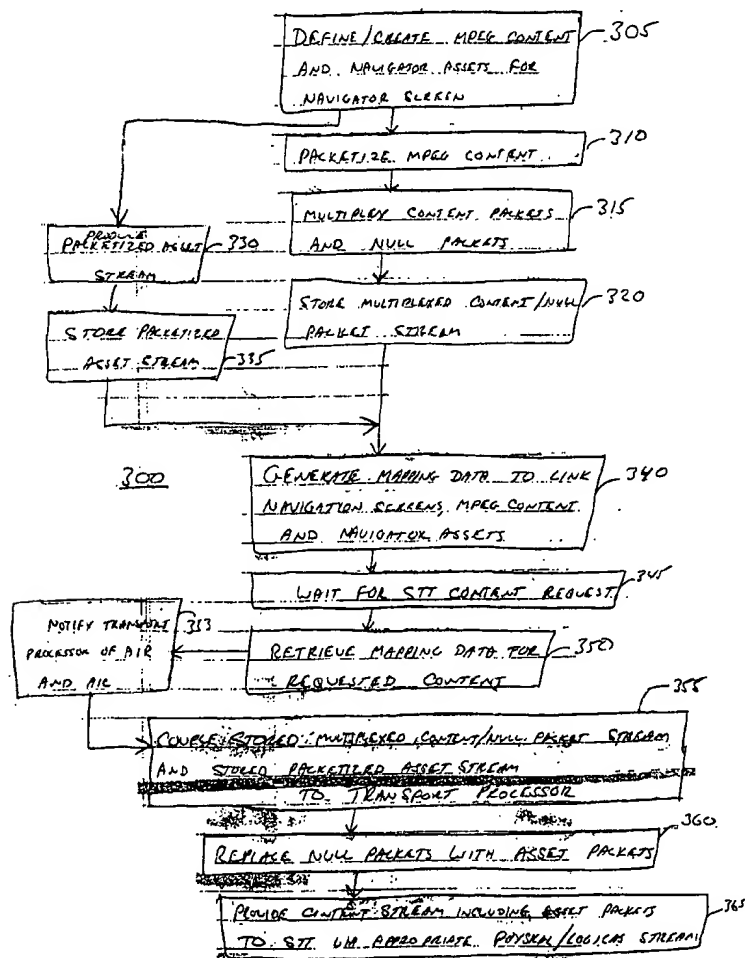 DEFINE/CREATE MPEG CONTENT
AND NAVIGATOR ASSETS FOR
NAVIGATOR SCREEN
305
PACKETIZE MPEG CONTENT
310
MULTIPLEX CONTENT PACKETS
AND NULL PACKETS
315
PRODUCE
PACKETIZED ASSET
STREAM
330
STORE MULTIPLEXED CONTENT/NULL
PACKET STREAM
320
STORE PACKETIZED
ASSET STREAM
335
300
GENERATE MAPPING DATA TO LINK
NAVIGATION SCREENS, MPEG CONTENT
AND NAVIGATOR ASSETS
340
WAIT FOR STT CONTENT REQUEST
345
NOTIFY TRANSPORT
PROCESSOR OF AIR
AND AIL
353
RETRIEVE MAPPING DATA FOR
REQUESTED CONTENT
350
355
COUPLE STORED MULTIPLEXED CONTENT/NULL PACKET STREAM
AND STORED PACKETIZED ASSET STREAM
TO TRANSPORT PROCESSOR
REPLACE NULL PACKETS WITH ASSET PACKETS
360
PROVIDE CONTENT STREAM INCLUDING ASSET PACKETS
TO STT VIA APPROPRIATE PHYSICAL/LOGICAL STREAM
365